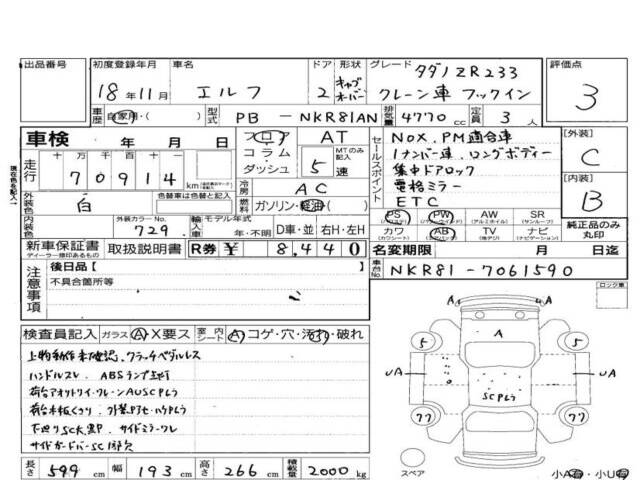 出品番号 初度登録年月 車名 ドア 形状 グレード 評価点
18年11月 エルフ 2 キャブオーバー タダノZR233
クレーン車 フックイン 3
車歴 自家用・( ) 型式 PB － NKR81AN 排気量 4770cc 定員 3人
車検 年 月 日
フロア コラム・ダッシュ AT MTのみ記入 5速
走行 十万 万 千 百 十 一
70914 km
冷房 AC
燃料 ガソリン・軽油( )
外装色 白 色替車は元色
内装色 外装カラーNo. 729 輸入車 モデル年式 年・不明 D車・並 右H・左H
セールスポイント
NOX.PM適合車
1ナンバー車.ロングボディー
集中ドアロック
電格ミラー
ETC
[外装] C
[内装] B
PS PW AW SR
(パワステ) (パワーウインド) (アルミホイル) (サンルーフ)
カワ AB TV ナビ
(カワシート) (エアバック) (地デジ) (ナビゲーション)
純正品のみ丸印
新車保証書 取扱説明書 R券 ¥ 8,440
ディーラー捺印あるもの
名変期限 月 日迄
車台No. NKR81-7061590
注意事項
後日品[ ]
不具合箇所等
ロック車
検査員記入 ガラス A・X要ス 室内シート A・コゲ・穴・汚れ・破れ
上物動作未確認.クラッチペダルスレ
ハンドルスレ. ABSランプ点灯
荷台アオリ クレーンAUSCPムラ
サイドガードバーSC
長さ 599cm 幅 193cm 高さ 266cm 積載量 2000kg
A uA
A
5 5
uA uA
SCPムラ
77 77
スペア
小A有・小U有